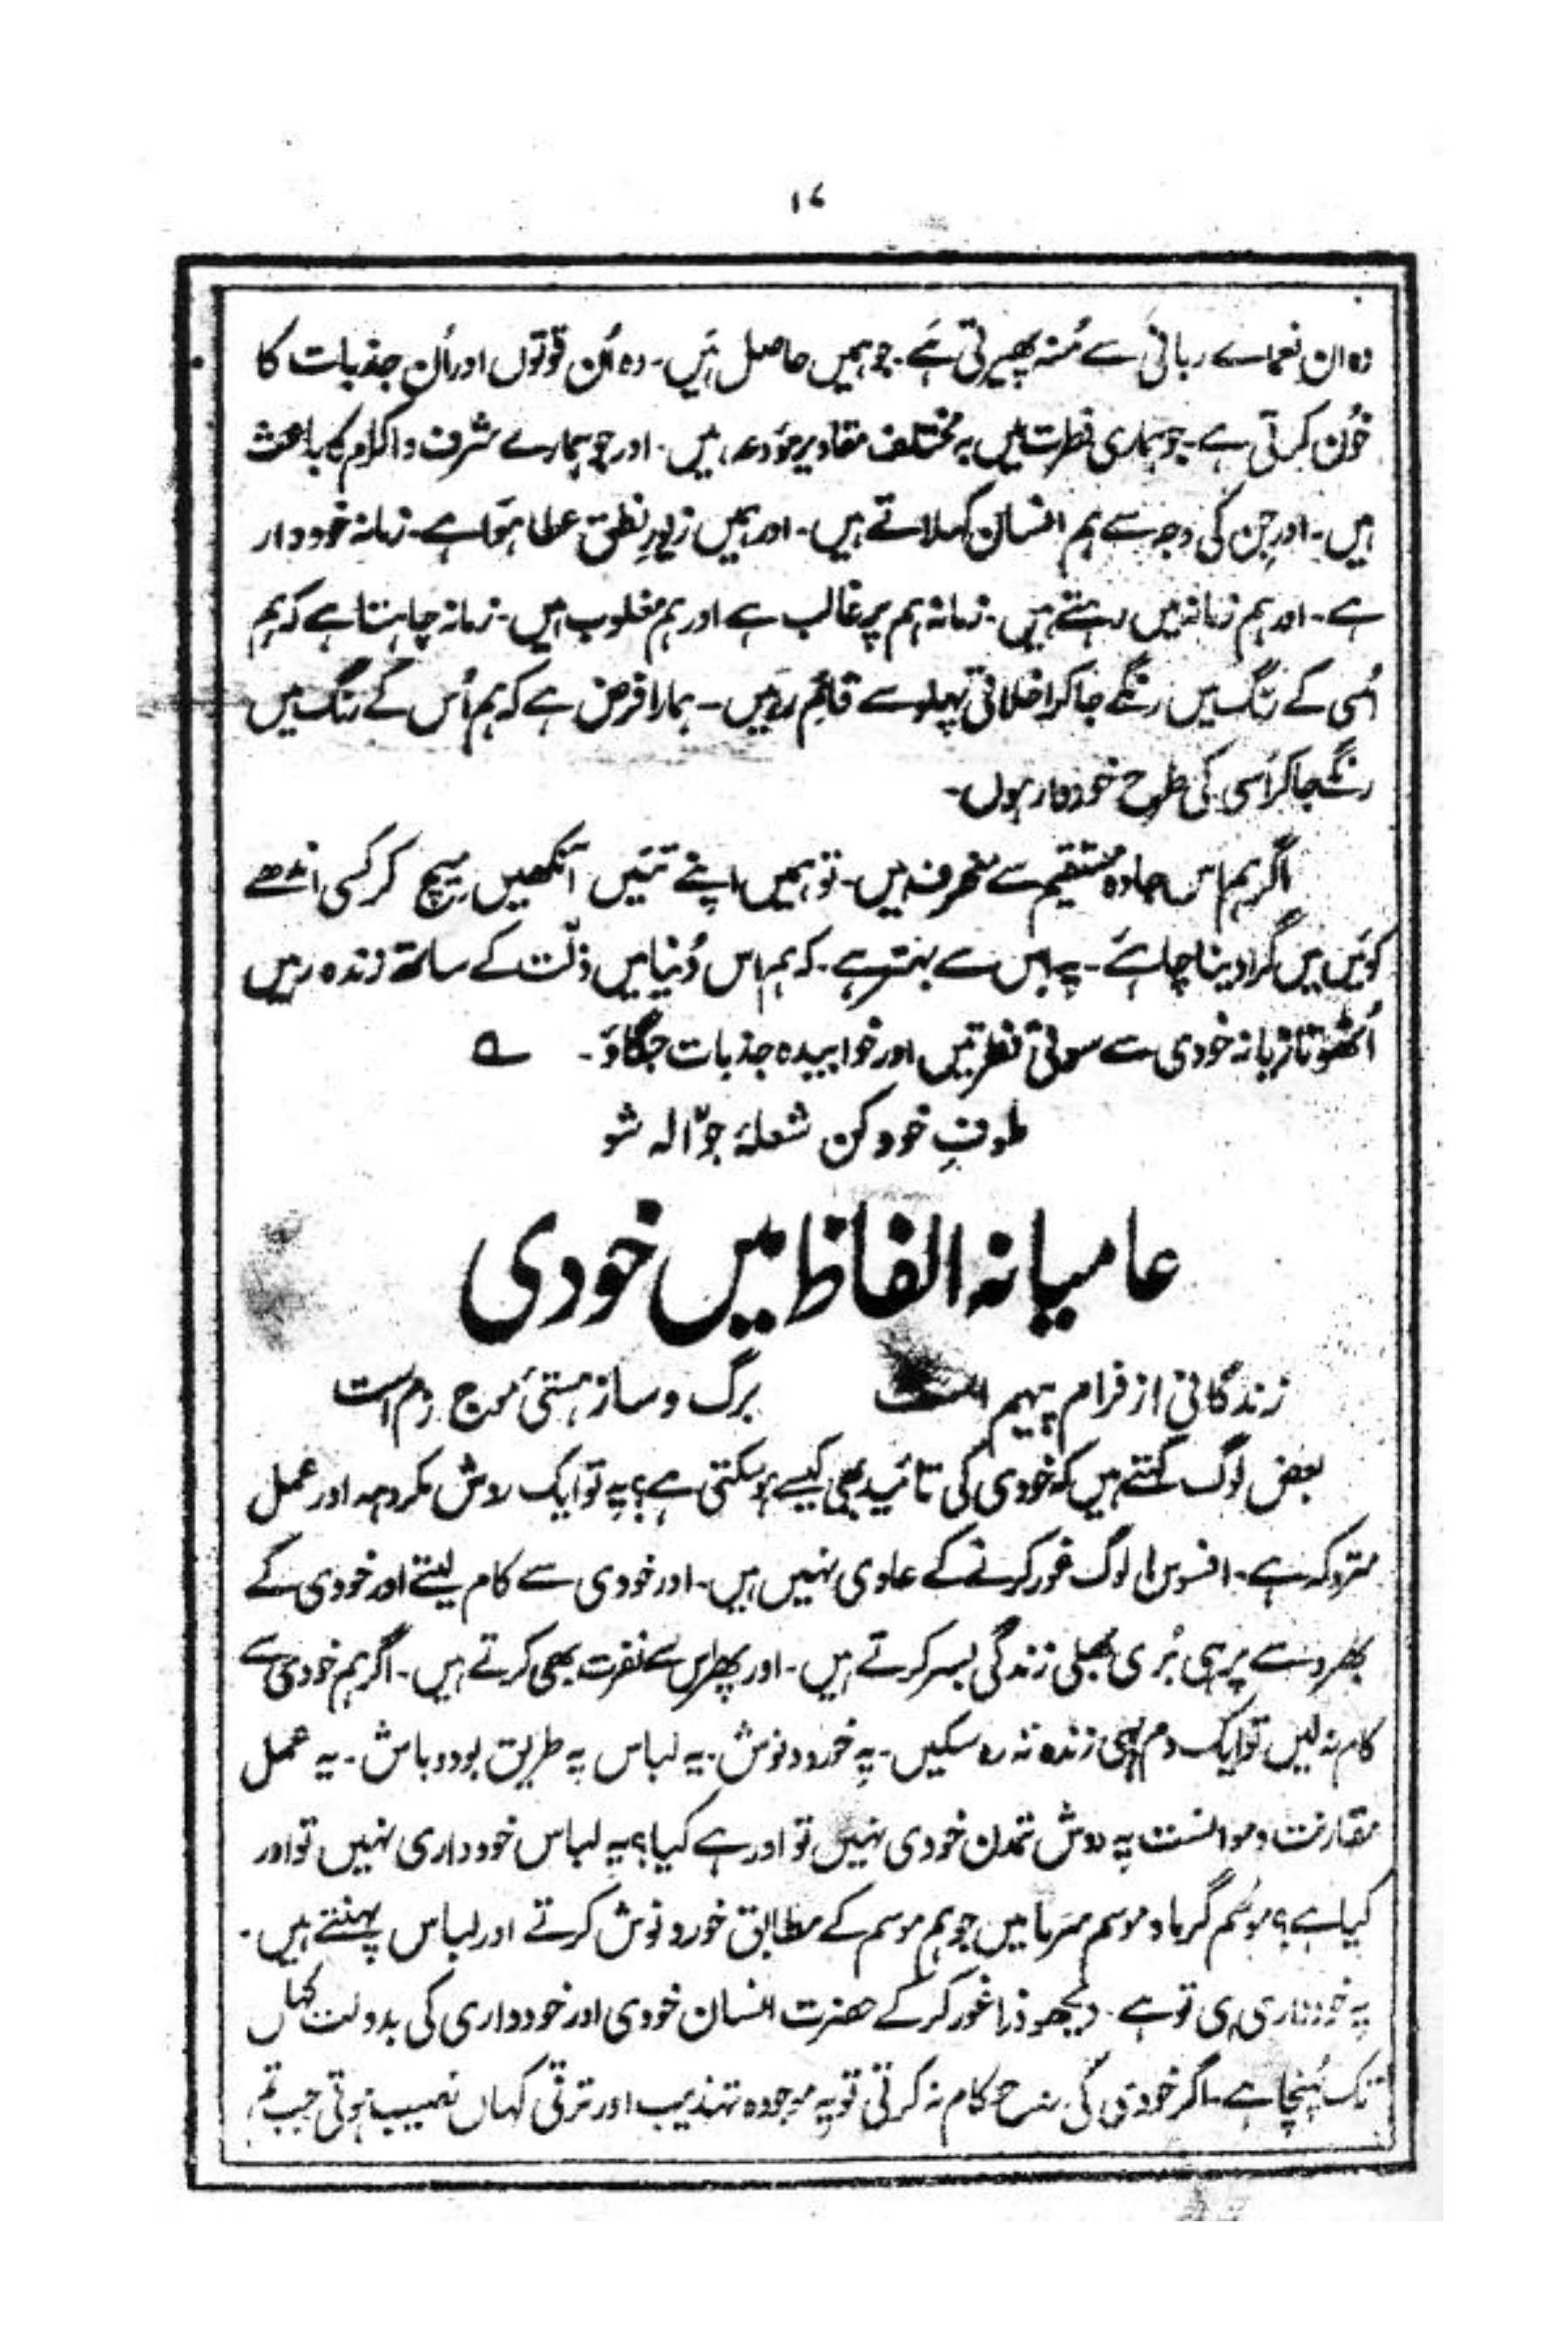 ۱۷
وہ ان نعمائے ربانی سے مُنہ پھیرتی ہے۔ جو ہمیں حاصل ہیں۔ وہ اُن قوتوں اور اُن جذبات کا
خُون کرتی ہے۔ جو ہماری فطرت میں بہ مختلف مقادیر مؤدعہ ہیں۔ اور جو ہمارے شرف و اکرام کا باعث
ہیں۔ اور جن کی وجہ سے ہم انسان کہلاتے ہیں۔ اور ہمیں زیورِ نطق عطا ہوا ہے۔ زمانہ خوددار
ہے۔ اور ہم زمانہ میں رہتے ہیں۔ زمانہ ہم پر غالب ہے اور ہم مغلوب ہیں۔ زمانہ چاہتا ہے کہ ہم
اُسی کے رنگ میں رنگے جا کر اخلاقی پہلو سے قائم رہیں۔ ہمارا فرض ہے کہ ہم اُس کے رنگ میں
رنگے جا کر اُسی کی طرح خوددار ہوں۔
اگر ہم اس جادہ مستقیم سے منحرف ہیں۔ تو ہمیں اپنے تئیں آنکھیں میچ کر کسی اندھے
کوئیں میں گرا دینا چاہئے۔ یہ اس سے بہتر ہے۔ کہ ہم اس دُنیا میں ذلّت کے ساتھ زندہ رہیں
اُٹھو تازیانہ خودی سے سوئی فطرتیں اور خوابیدہ جذبات جگاؤ۔ ؎
طوفِ خود کن شعلۂ جوّالہ شو
عامیانہ الفاظ میں خودی
زندگانی از خرام پیہم است برگ و ساز ہستیٔ موج رم است
بعض لوگ کہتے ہیں کہ خودی کی تائید بھی کیسے ہو سکتی ہے؟ یہ تو ایک روش مکروہہ اور عمل
متروکہ ہے۔ افسوس! لوگ غور کرنے کے عادی نہیں ہیں۔ اور خودی سے کام لیتے اور خودی کے
بھروسے پر ہی بُری بھلی زندگی بسر کرتے ہیں۔ اور پھر اس سے نفرت بھی کرتے ہیں۔ اگر ہم خودی سے
کام نہ لیں تو ایک دم بھی زندہ نہ رہ سکیں۔ یہ خورد و نوش۔ یہ لباس یہ طریق بود و باش۔ یہ عمل
مقارنت و موانست یہ روش تمدن خودی نہیں تو اور ہے کیا؟ یہ لباس خودداری نہیں تو اور
کیا ہے؟ موسم گرما و موسم سرما میں جو ہم موسم کے مطابق خورد و نوش کرتے اور لباس پہنتے ہیں۔
یہ خودداری ہی تو ہے۔ دیکھو ذرا غور کر کے حضرت انسان خودی اور خودداری کی بدولت کہاں
تک پُہنچا ہے۔ اگر خودی کی روح کام نہ کرتی تو یہ موجودہ تہذیب اور ترقی کہاں نصیب ہوتی جب تم